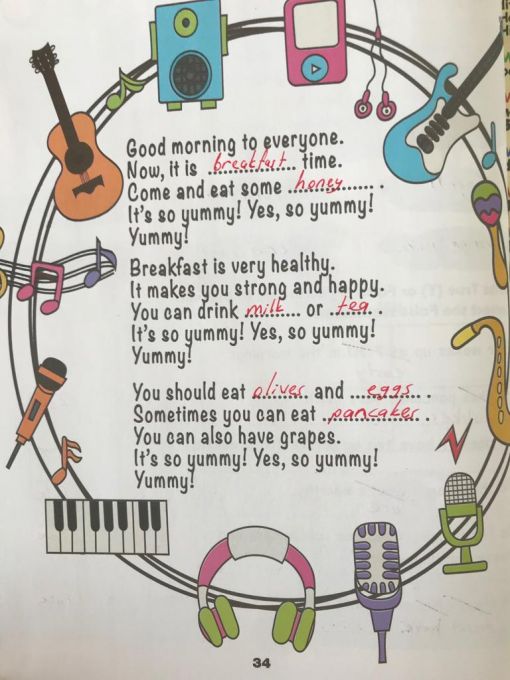 Good morning to everyone.
Now, it is breakfast time.
Come and eat some honey.
It's so yummy! Yes, so yummy!
Yummy!
Breakfast is very healthy.
It makes you strong and happy.
You can drink milk or tea.
It's so yummy! Yes, so yummy!
Yummy!
You should eat olives and eggs.
Sometimes you can eat pancakes.
You can also have grapes.
It's so yummy! Yes, so yummy!
Yummy!
34